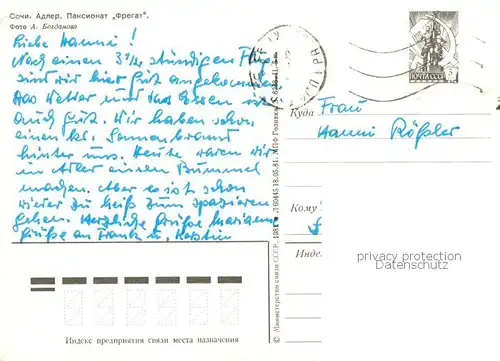 Сочи. Адлер. Пансионат „Фрегат".
Фото А. Богданова
Liebe Hanni!
Nach einen 3 1/2 stündigen Flug
sind wir hier gut angekommen.
Das Wetter und das Essen ist
auch gut. Wir haben schon
einen kl. Sonnenbrand
hinter uns. Heute waren wir
in Adler einen Bummel
machen. Aber es ist schon
wieder zu heiß zum spazieren
gehen. Herzliche Grüße Mariann
Grüße an Frank u. Kerstin
Индекс предприятия связи места назначения
© Министерство связи СССР. 1981
60445 18.05.81. МПФ Гознака.
ПОЧТА СССР
Куда
Frau
Hanni Rößler
Кому
Индекс
privacy protection
Datenschutz